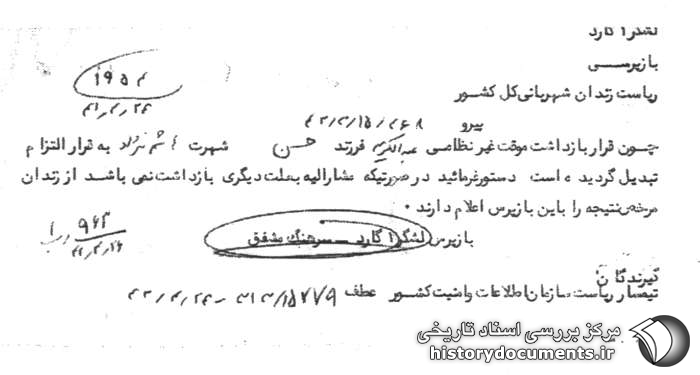 لشکر ۱ گارد
بازپرسی
ریاست زندان شهربانی کل کشور
۱۹۵۴
پیرو
چون قرار بازداشت موقت غیر نظامی عبدالکریم فرزند حسن شهرت هاشمی نژاد به قرار التزام
تبدیل گردیده است دستور فرمائید در صورتیکه مشارالیه بعلت دیگری بازداشت نمی باشد از زندان
مرخص نتیجه را باین بازپرس اعلام دارند .
بازپرس لشگر ۱ گارد ــ سرهنگ مشفق
۹۶۳
گیرندگان:
تیمسار ریاست سازمان اطلاعات و امنیت کشور عطف
مرکز بررسی اسناد تاریخی
historydocuments.ir